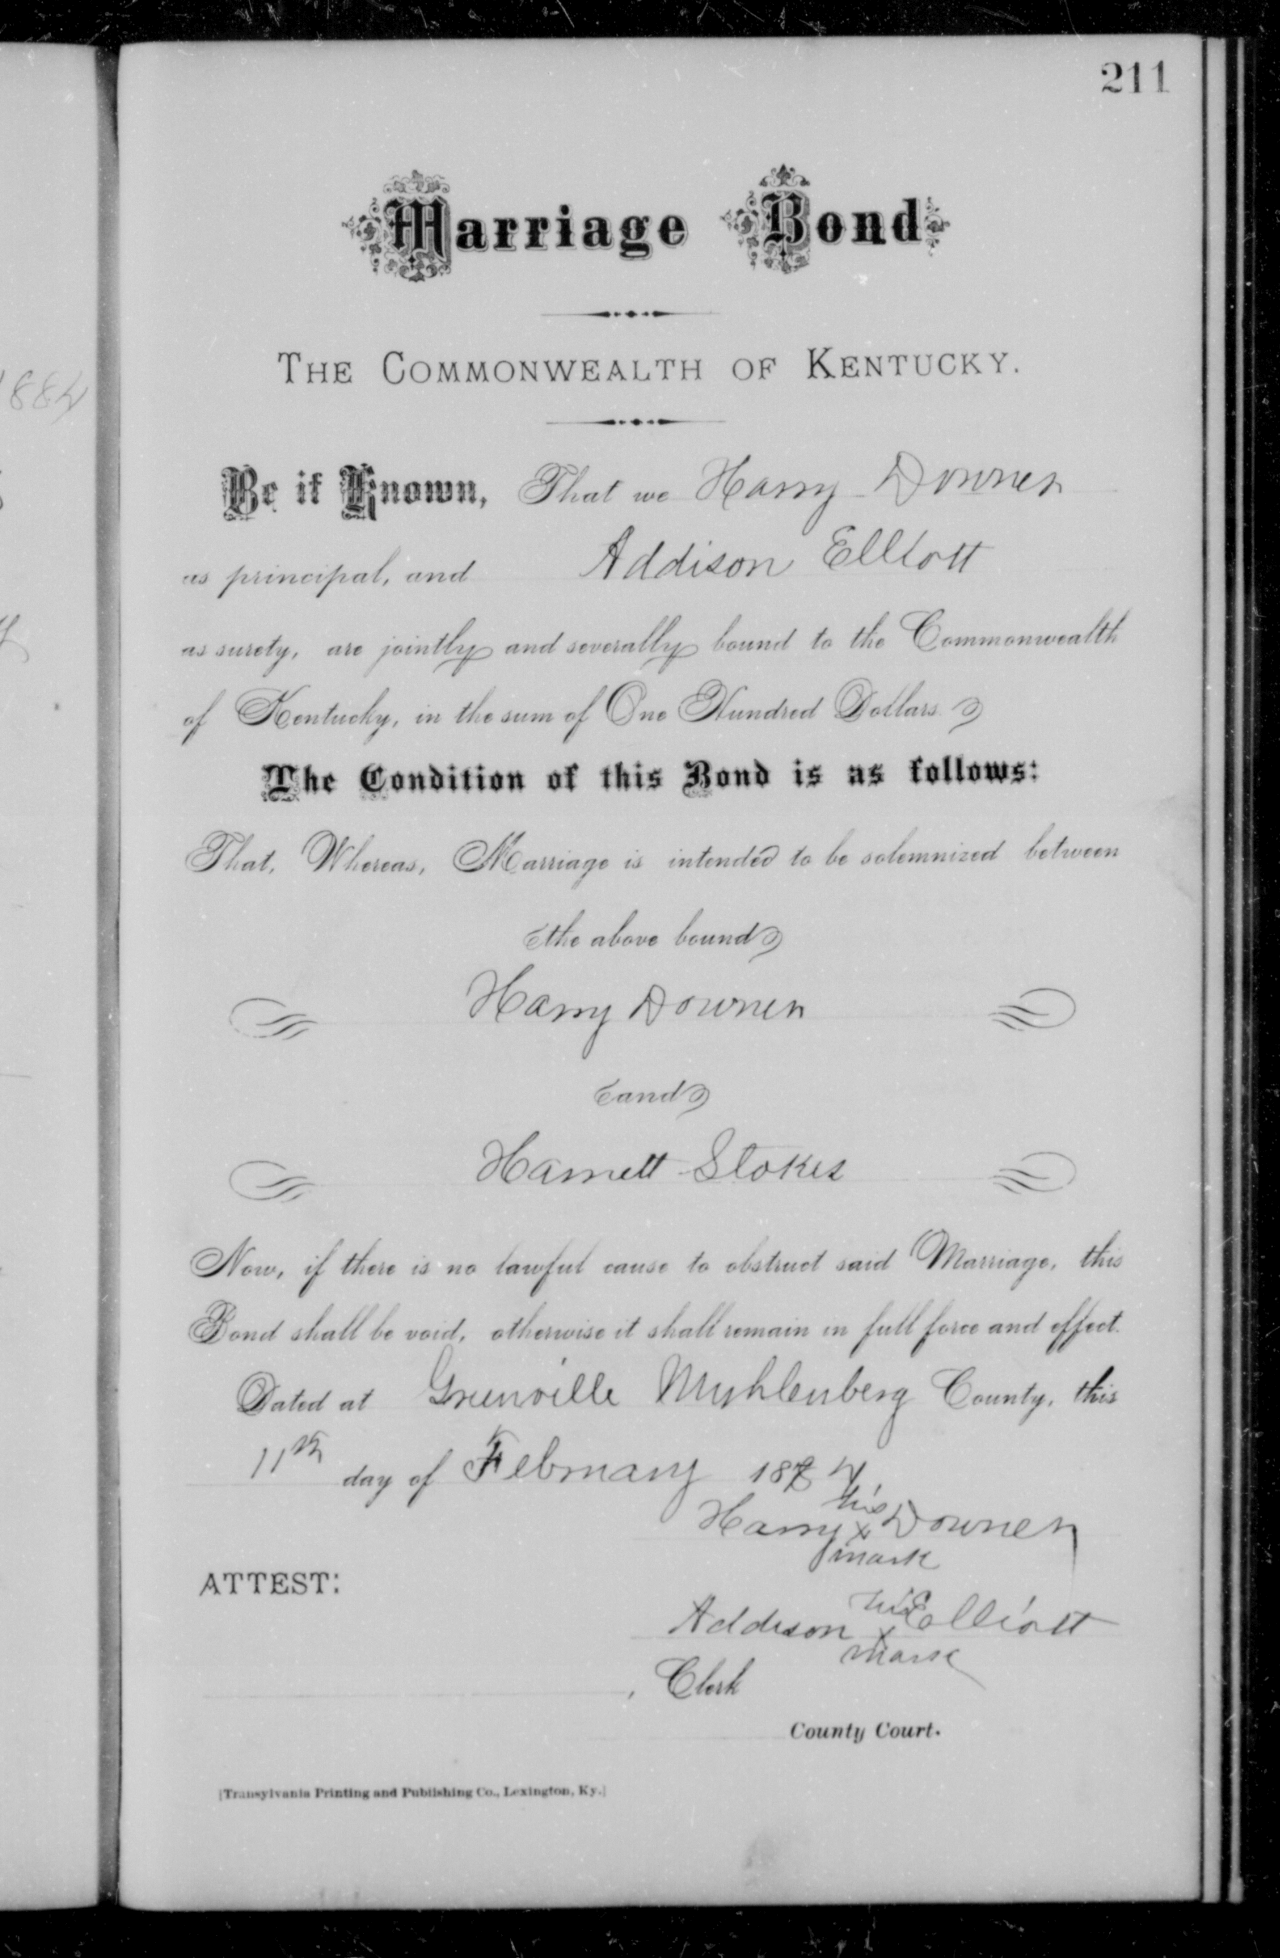 211
Marriage Bond
THE COMMONWEALTH OF KENTUCKY.
1884
Be it Known, That we Harry Downer
as principal, and Addison Elliott
as surety, are jointly and severally bound to the Commonwealth
of Kentucky, in the sum of One Hundred Dollars.
The Condition of this Bond is as follows:
That, Whereas, Marriage is intended to be solemnized between
the above bound
Harry Downer
and
Harriett Stokes
Now, if there is no lawful cause to obstruct said Marriage, this
Bond shall be void, otherwise it shall remain in full force and effect.
Dated at Greenville Muhlenberg County, this
11th day of February 1884
his
Harry x Downer
mark
ATTEST:
his
Addison x Elliott
mark
, Clerk
County Court.
[Transylvania Printing and Publishing Co., Lexington, Ky.]